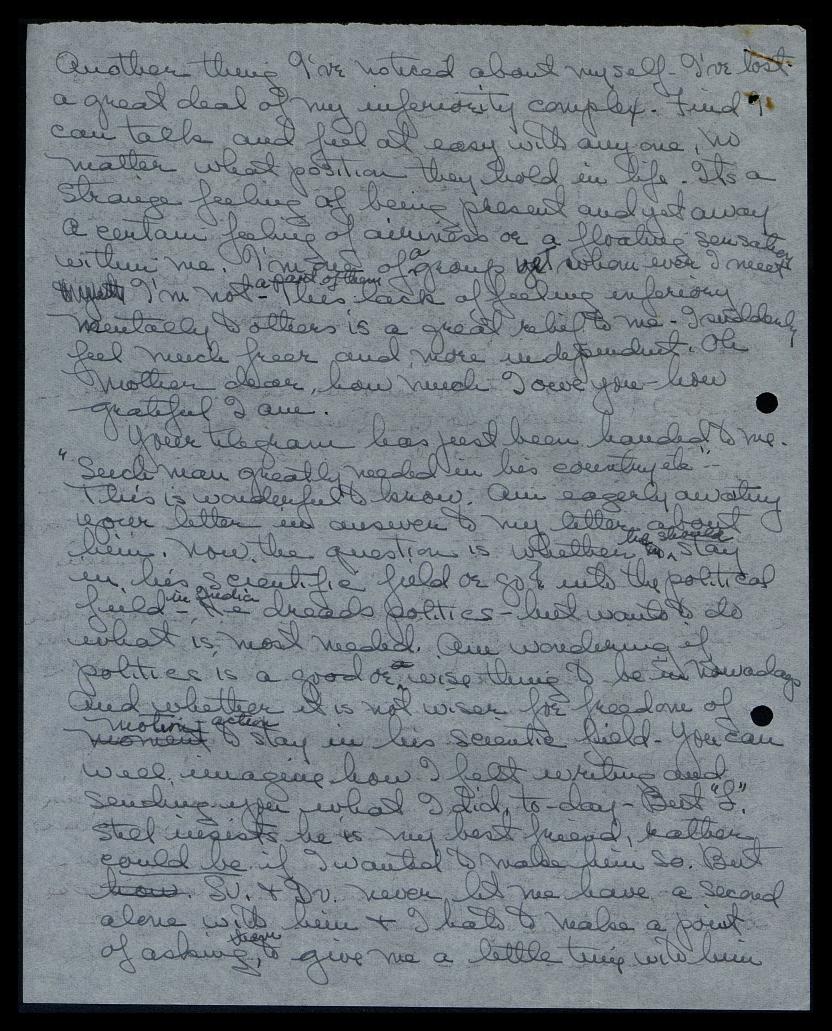 Another thing I've noticed about myself - I've lost
a great deal of my inferiority complex. Find I
can talk and feel at easy with any one, no
matter what position they hold in life. Its a
strange feeling of being present and yet away
a certain feeling of airiness or a floating sensation
within me. I'm one of a group yet whom ever I meet
I'm not - a part of them This lack of feeling inferiory
mentally to others is a great relief to me - I suddenly
feel much freer and more independent. Oh
Mother dear, how much I owe you - how
grateful I am.
Your telegram has just been handed to me.
"Such man greatly needed in his country etc" -
This is wonderful to know. Am eagerly awaiting
your letter in answer to my letter about
him. Now the question is whether he should stay
in his scientific field or go into the political
field - in India He dreads politics - but wants to do
what is most needed. Am wondering if
politics is a good or a wise thing to be in nowadays
and whether it is not wiser for freedom of
moment motion - action to stay in his scientic field - You can
well imagine how I felt writing and
sending you what I did, to-day - But "S".
still insists he is my best friend, rather
could be if I wanted to make him so. But
how. Sv. + Dv. never let me have a second
alone with him + I hate to make a point
of asking them to give me a little time with him